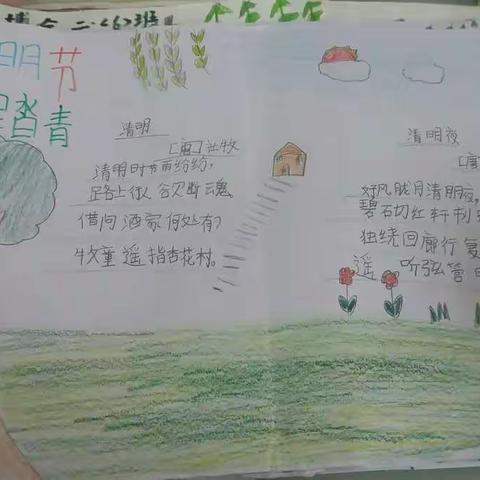 博 二(6)班
明节
踏青
清明
[唐]杜牧
清明时节雨纷纷,
路上行人欲断魂
借问酒家何处有?
牧童遥指杏花村。
清明夜
[唐
好风胧月清明夜,
碧石切红轩刺
独绕回廊行复
遥听弦管